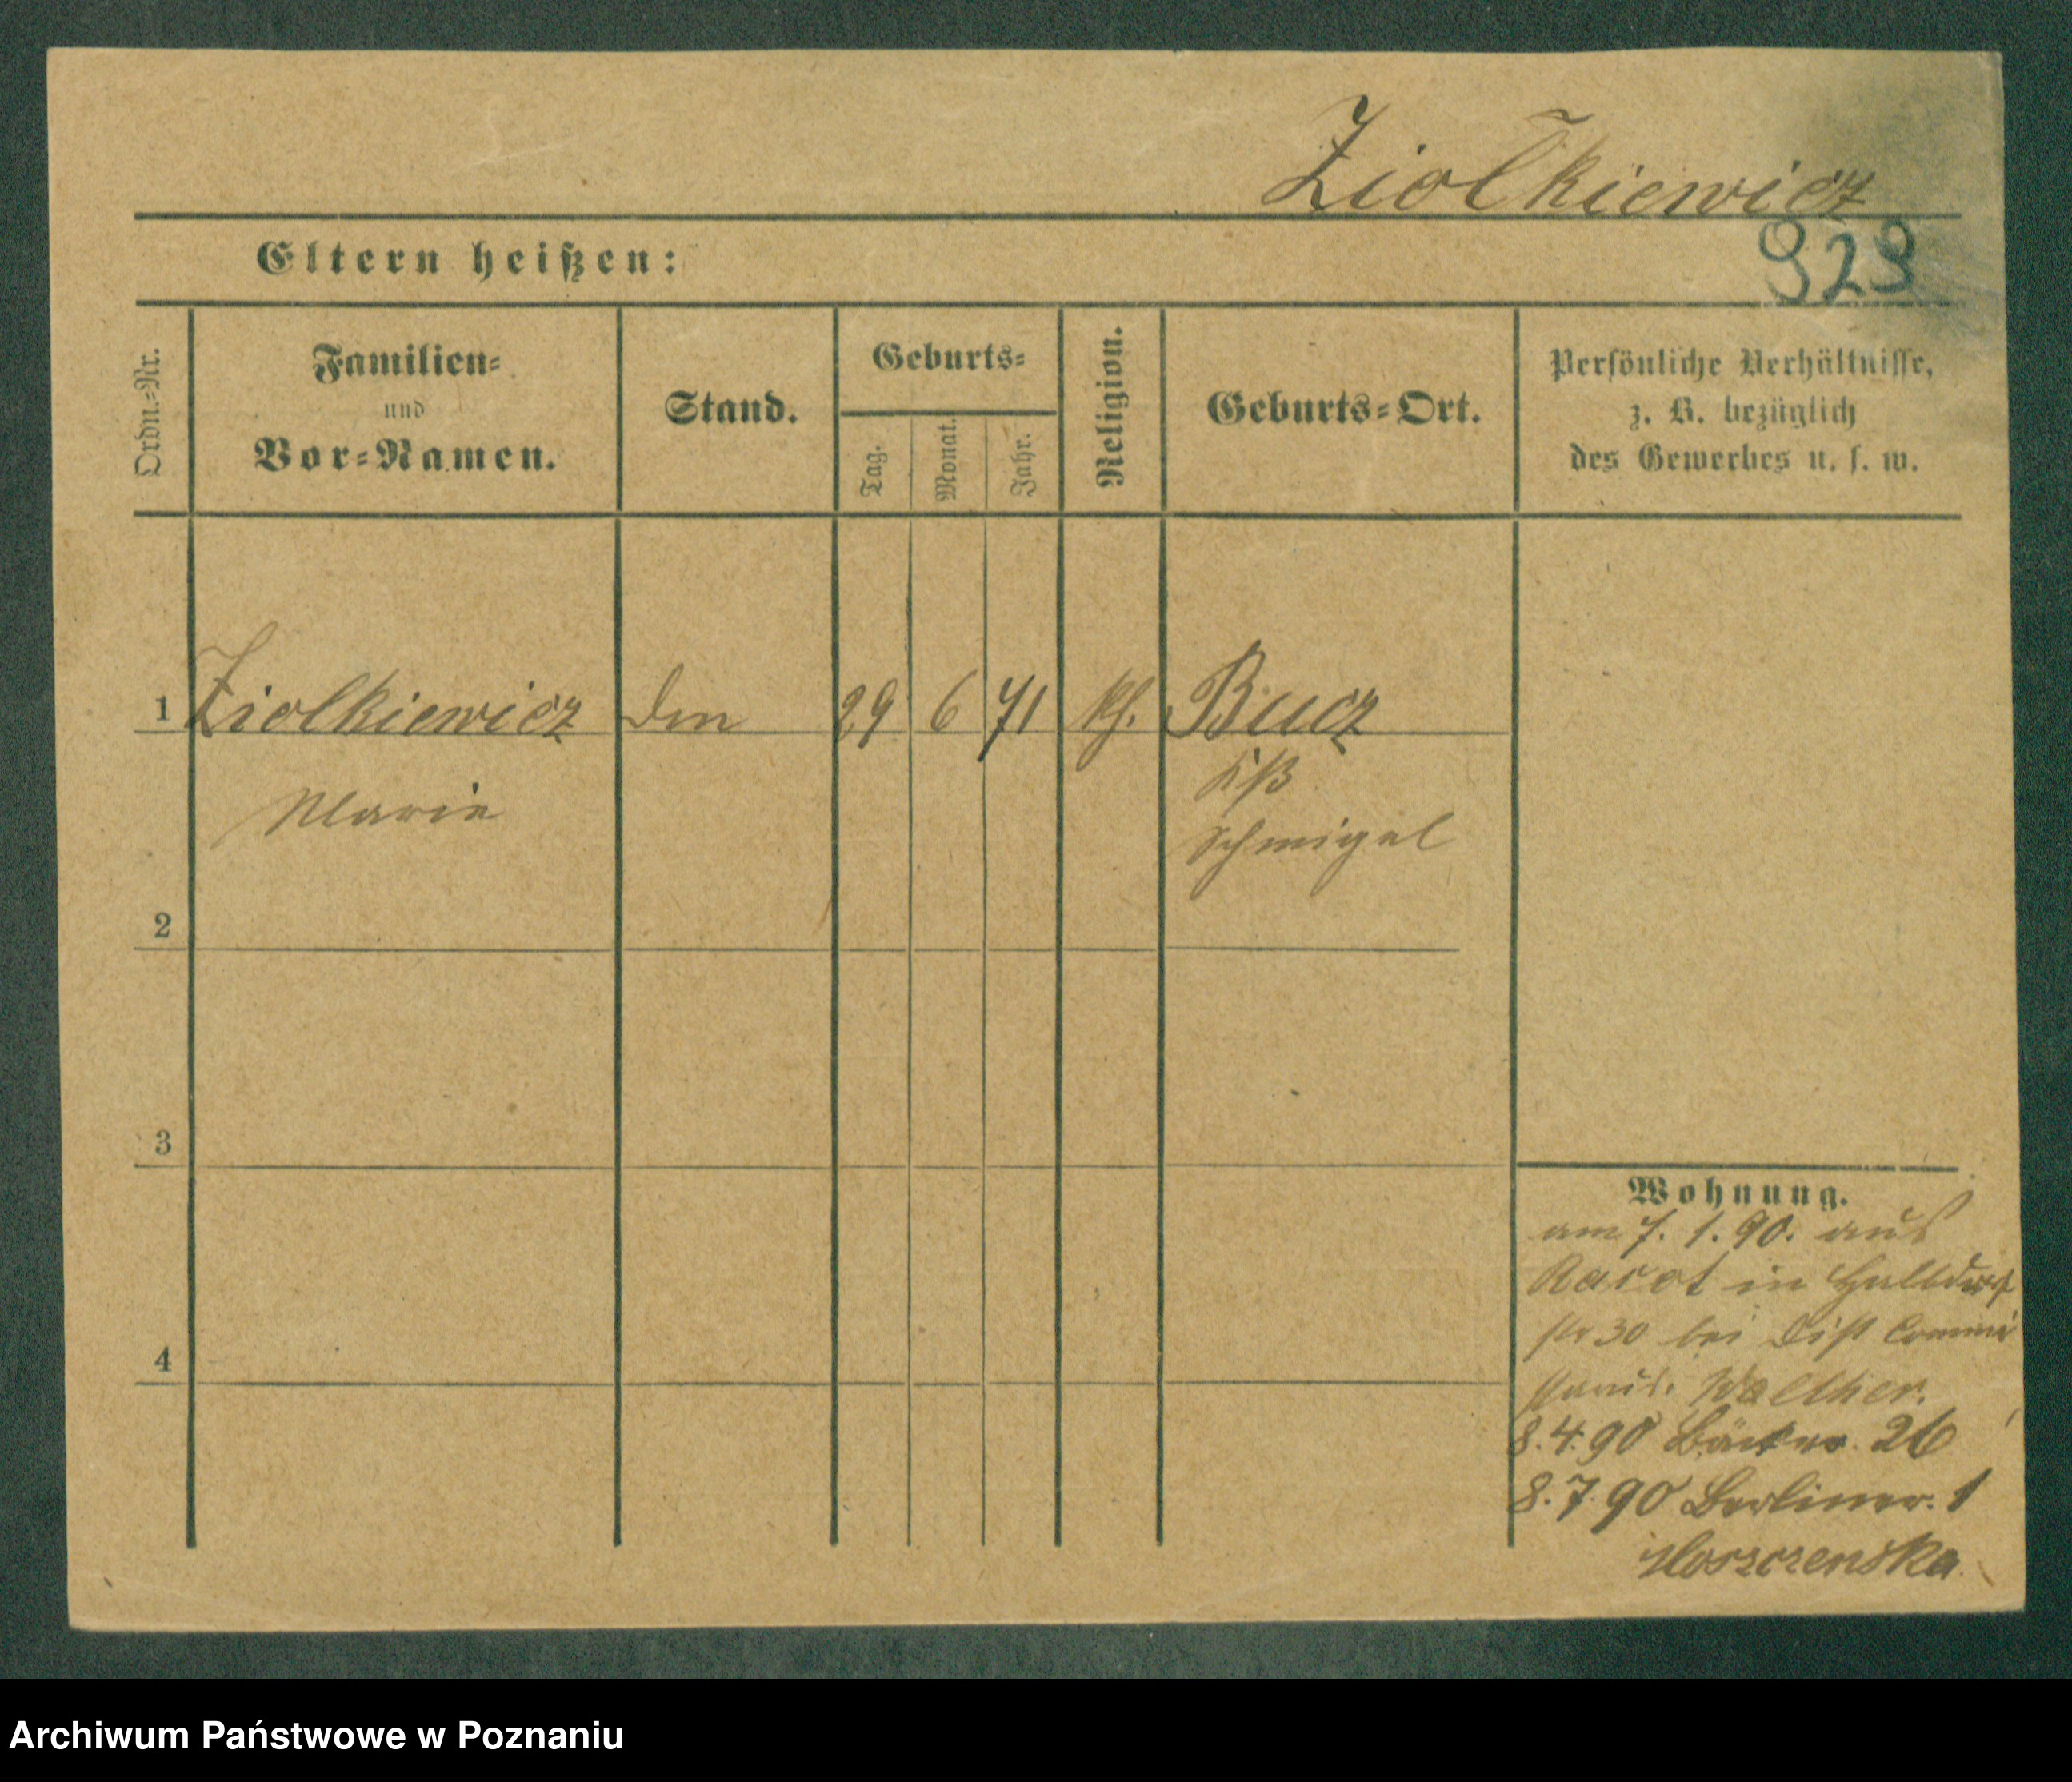 Ziolkiewicz
929
Eltern heißen:
Ordn.-Nr.
Familien-
und
Vor-Namen.
Stand.
Geburts-
Tag.
Monat.
Jahr.
Religion.
Geburts-Ort.
Persönliche Verhältnisse,
z. B. bezüglich
des Gewerbes u. s. w.
1 Ziolkiewicz 29 6 71 kth. Bucz
Marie
Schmigel
2
3
4
Wohnung.
am 7. 1. 90. aus
Racot in Halbdorf
str 30 bei Dist Commi
ssarius. Walther.
8. 4. 90 Bäcker. 26
8. 7. 90 Berliner. 1
Archiwum Państwowe w Poznaniu